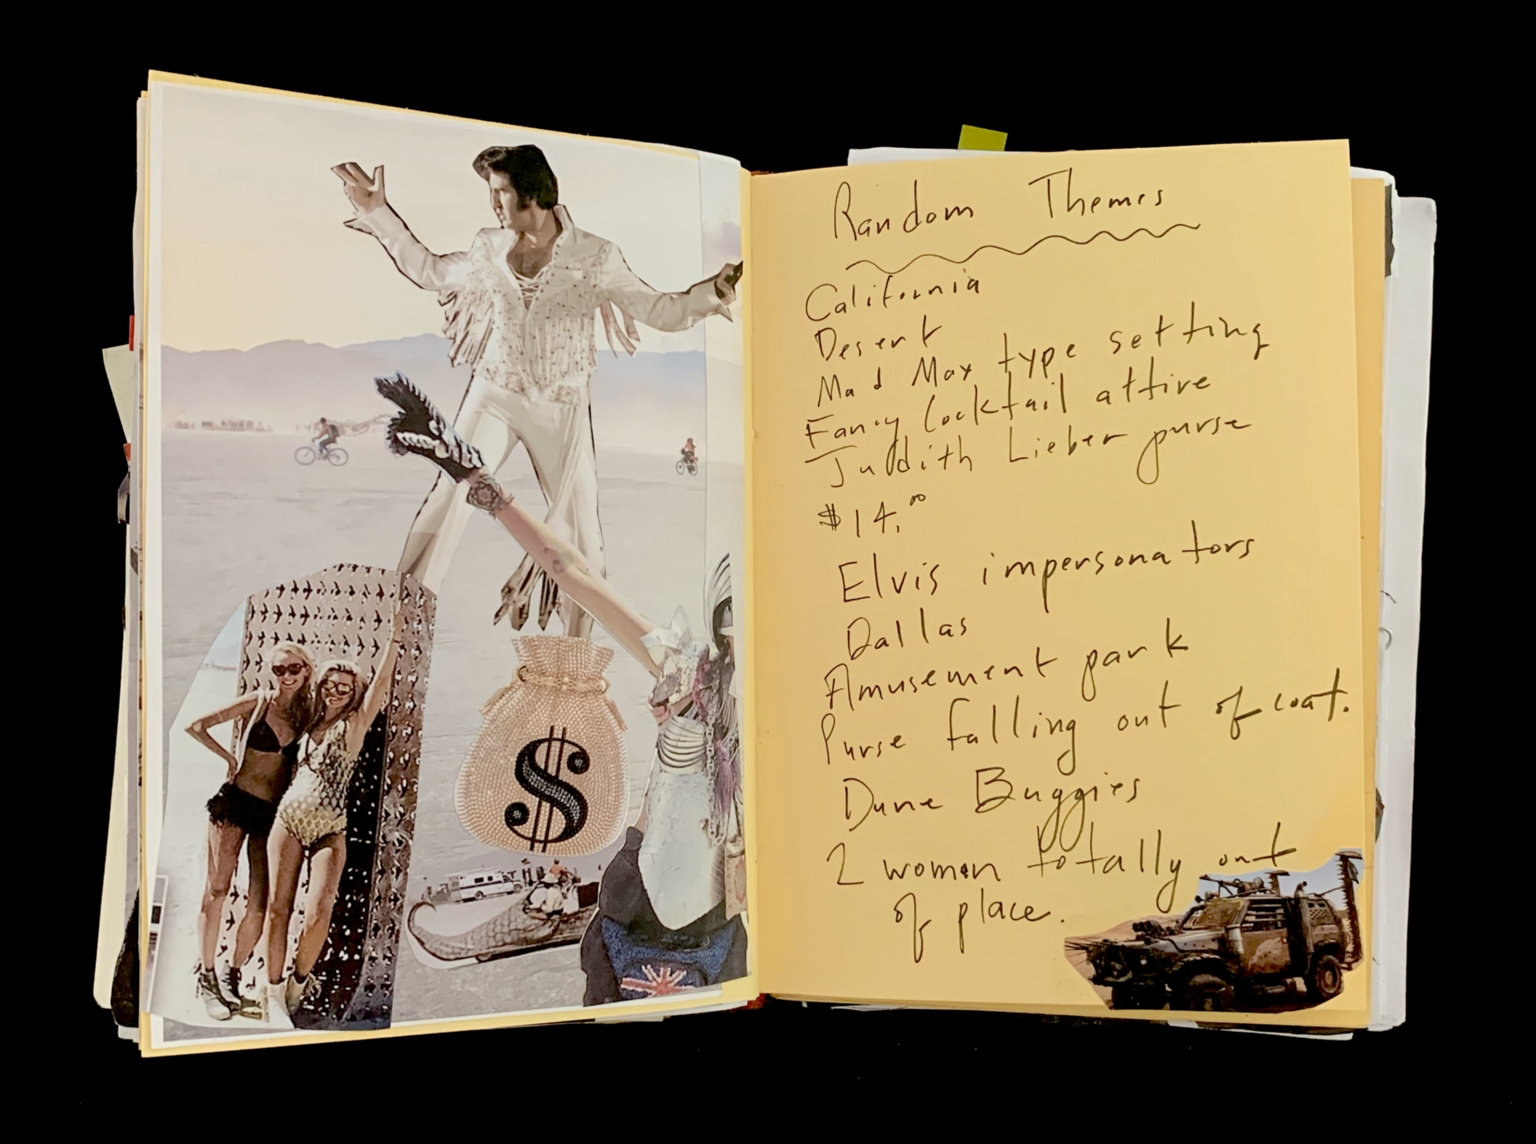 $
Random Themes
California
Desert
Mad Max type setting
Fancy Cocktail attire
Judith Lieber purse
$14.00
Elvis impersonators
Dallas
Amusement park
Purse falling out of coat.
Dune Buggies
2 woman totally out
of place.